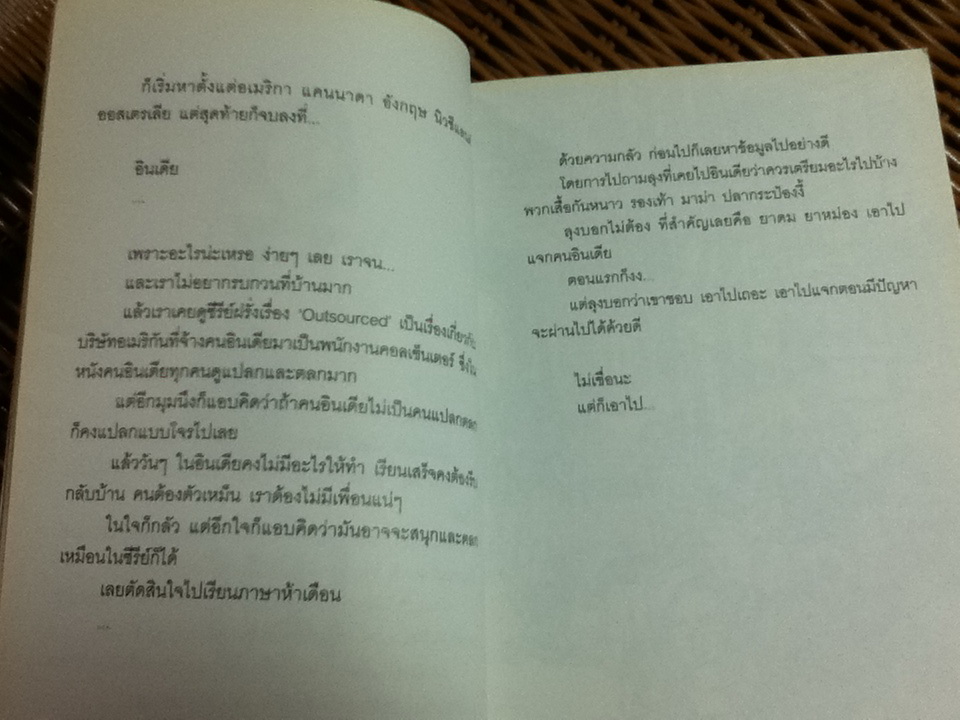 ก็เริ่มหาตั้งแต่อเมริกา แคนนาดา อังกฤษ นิวซีแลนด์
ออสเตรเลีย แต่สุดท้ายก็จบลงที่...
อินเดีย
...
เพราะอะไรน่ะเหรอ ง่ายๆ เลย เราจน...
และเราไม่อยากรบกวนที่บ้านมาก
แล้วเราเคยดูซีรีย์ฝรั่งเรื่อง 'Outsourced' เป็นเรื่องเกี่ยวกับ
บริษัทอเมริกันที่จ้างคนอินเดียมาเป็นพนักงานคอลเซ็นเตอร์ ซึ่งใน
หนังคนอินเดียทุกคนดูแปลกและตลกมาก
แต่อีกมุมนึงก็แอบคิดว่าถ้าคนอินเดียไม่เป็นคนแปลกตลก
ก็คงแปลกแบบโจรไปเลย
แล้ววันๆ ในอินเดียคงไม่มีอะไรให้ทำ เรียนเสร็จคงต้องรีบ
กลับบ้าน คนต้องตัวเหม็น เราต้องไม่มีเพื่อนแน่ๆ
ในใจก็กลัว แต่อีกใจก็แอบคิดว่ามันอาจจะสนุกและตลก
เหมือนในซีรีย์ก็ได้
เลยตัดสินใจไปเรียนภาษาห้าเดือน
...
ด้วยความกลัว ก่อนไปก็เลยหาข้อมูลไปอย่างดี
โดยการไปถามลุงที่เคยไปอินเดียว่าควรเตรียมอะไรไปบ้าง
พวกเสื้อกันหนาว รองเท้า มาม่า ปลากระป๋องงี้
ลุงบอกไม่ต้อง ที่สำคัญเลยคือ ยาดม ยาหม่อง เอาไป
แจกคนอินเดีย
ตอนแรกก็งง...
แต่ลุงบอกว่าเขาชอบ เอาไปเถอะ เอาไปแจกตอนมีปัญหา
จะผ่านไปได้ด้วยดี
ไม่เชื่อนะ
แต่ก็เอาไป...